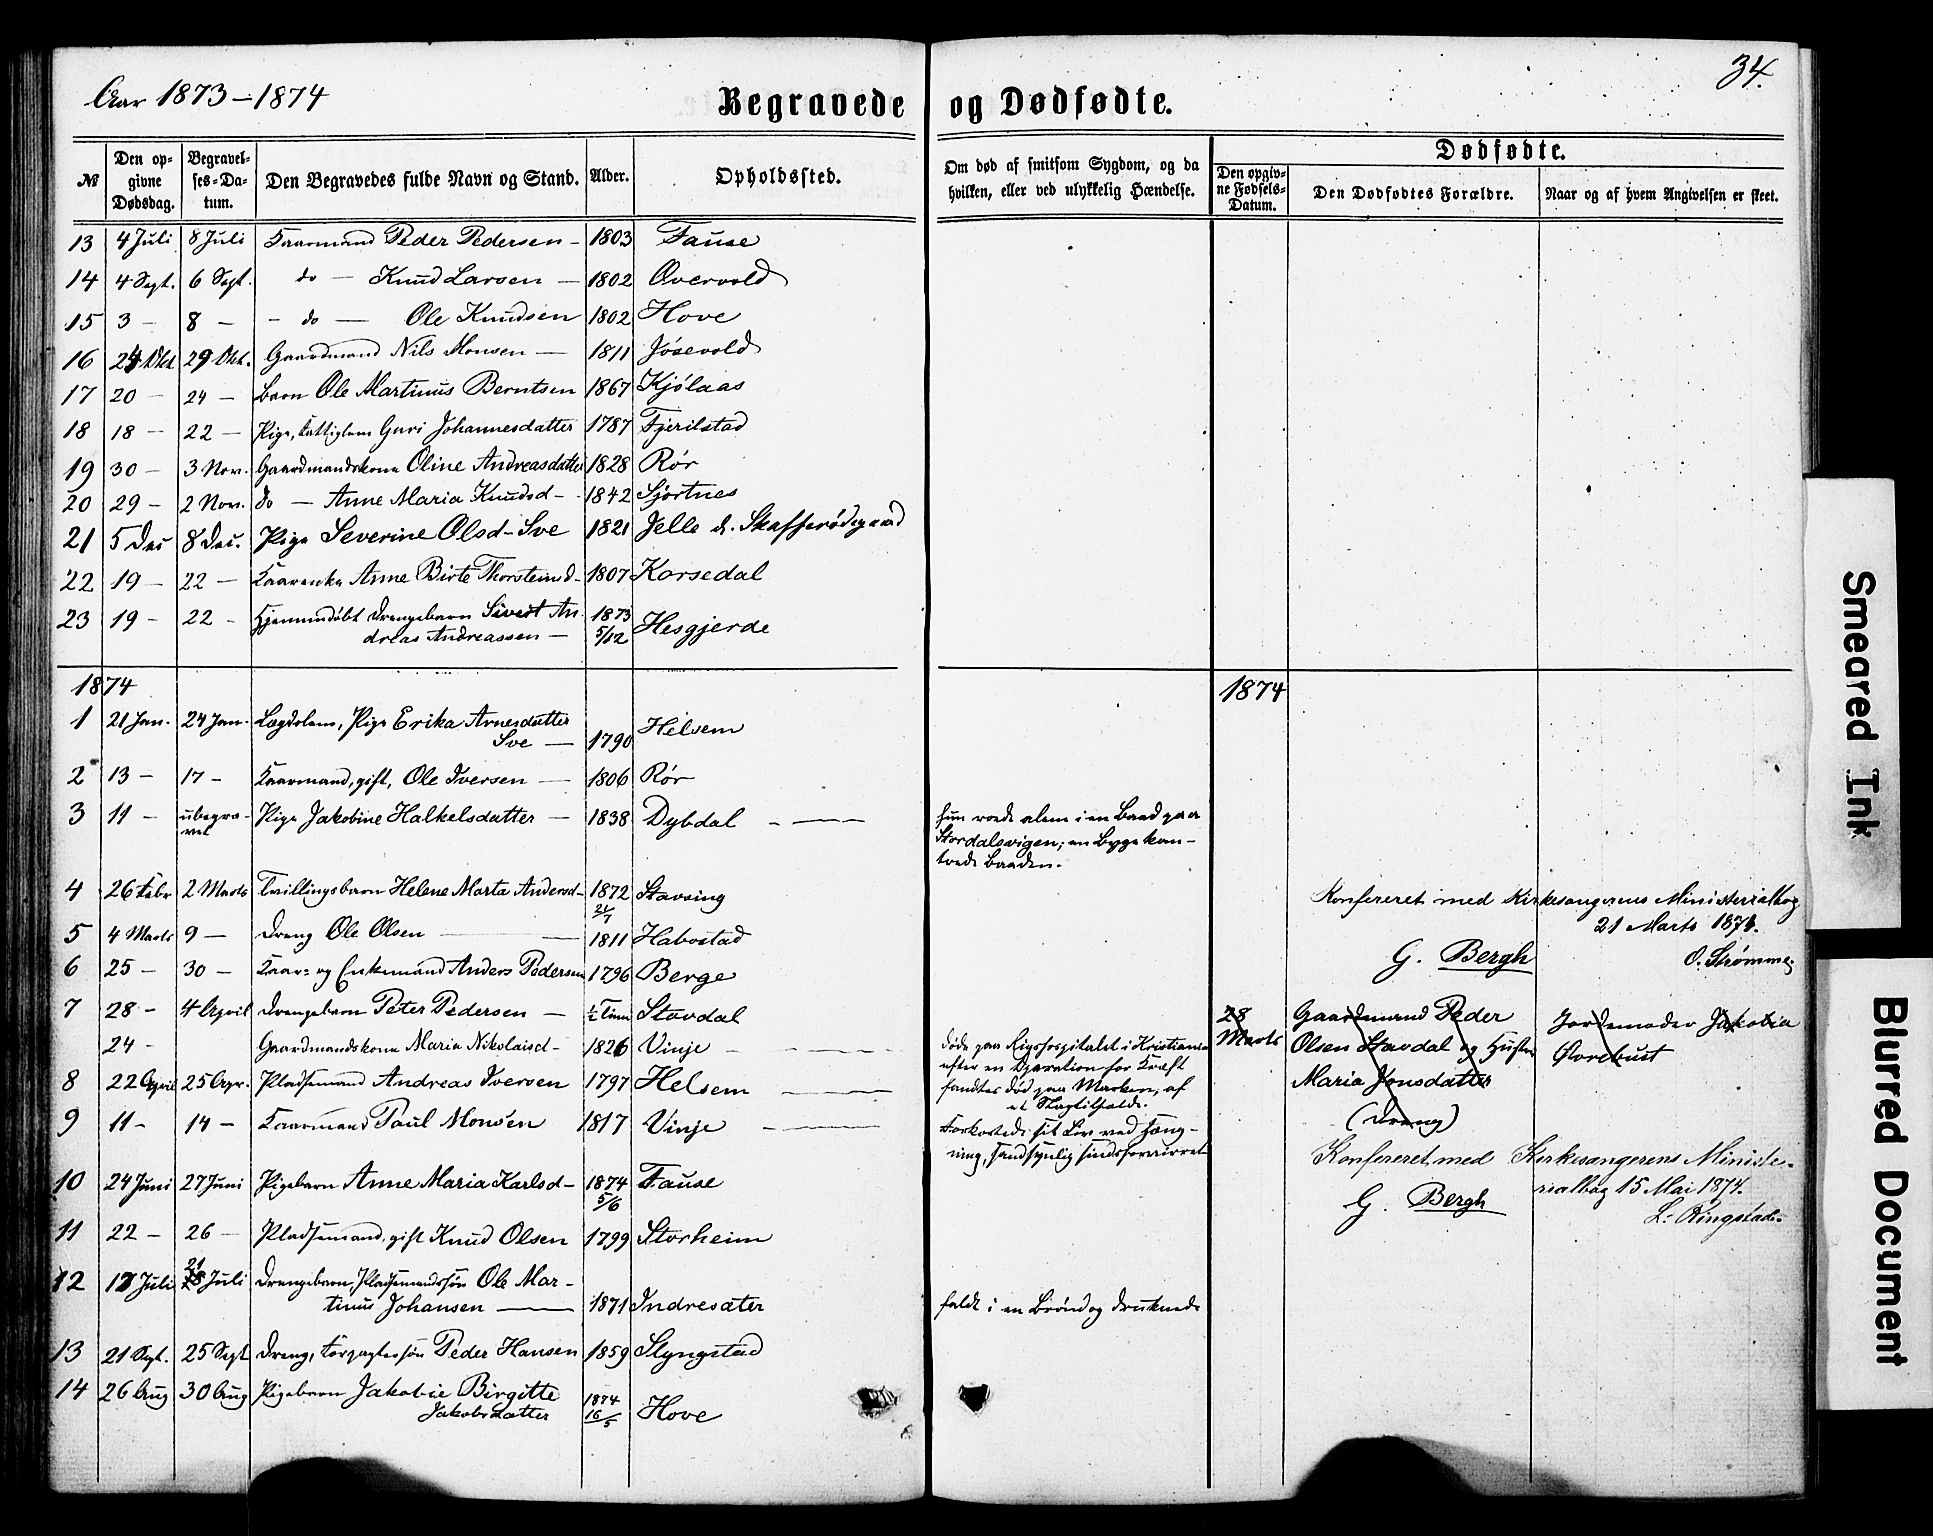 Aar 1873–1874
Begravede og Dødfødte.
34.
№
Den opgivne Dødsdag.
Begravelses-Datum.
Den Begravedes fulde Navn og Stand.
Alder.
Opholdssted.
Om død af smitsom Sygdom, og da hvilken, eller ved ulykkelig Hændelse.
Dødfødte.
Den opgivne Fødsels-Datum.
Den Dødfødtes Forældre.
Naar og af hvem Angivelsen er skeet.
13 4 Juli 8 Juli Kaarmand Peder Pedersen – 1803 Fause
14 4 Sept. 6 Sept. do – Knud Larsen – 1802 Overvold
15 3 – 8 – – do – Ole Knudsen 1802 Hove
16 24 Okt 29 Okt. Gaardmand Nils Monsen – 1811 Jøsevold
17 20 – 24 – barn Ole Martinus Berntsen 1867 Kjølaas
18 18 – 22 – Pige, Fattiglem Guri Johannesdatter 1787 Fjerilstad
19 30 – 3 Nov. Gaardmandskone Oline Andreasdatter 1828 Rør
20 29 – 2 Nov. do – Anne Maria Knudsd – 1842 Sjørtnes
21 5 Dec 8 Dec. Pige Severine Olsd – Sve 1821 Jelle d. Skafferødegaard
22 19 – 22 – Kaarenke Anne Birte Thorsteinsd – 1807 Korsedal
23 19 – 22 – Hjemmedøbt Drengebarn Sivert An-
dreas Andreassen – 1873 5/12 Hesgjerde
1874
1874
1 21 Jan. 24 Jan. Lægdslem, Pige Erika Arnesdatter
Sve – 1790 Helsem
2 13 – 17 – Kaarmand, gift, Ole Iversen – 1806 Rør
3 11 – ubegra-
vet Pige Jakobine Halkelsdatter – 1838 Dybdal – hun roede alene i en Baad paa
Stordalsvigen; en Byge kan-
trede Baaden.
4 26 Febr 2 Marts Tvillingsbarn Helene Marta Andersd – 1872 21/7 Stavsing
Konfereret med Kirkesangerens Ministerialbog
21 Marts 1874.
5 4 Marts 9 – Dreng Ole Olsen – 1811 Habostad
G. Bergh O. Strømme
6 25 – 30 – Kaar- og Enkemand Anders Pedersen 1796 Berge
7 28 – 4 April Drengebarn Peter Pedersen – ½ Time Stavdal
28 Marts Gaardmand Peder
Olsen Stavdal og Hustru
Maria Jonsdatter
(Dreng)
Jordemoder Jakobia
Øvrebust
24 – Gaardmandskone Maria Nikolaisd – 1826 Vinje – døde paa Rigshospitalet i Kristiania
efter en Operation for Kræft
8 22 April 25 Apr. Pladsemand Andreas Iversen 1797 Helsem – fandtes død paa Marken, af
et Slagtilfælde.
9 11 – 14 – Kaarmand Paul Monsen 1817 Vinje – Forkortede sit Liv ved Hæng-
ning, sandsynlig sindsforvirret
Konfereret med Kirkesangerens Ministe-
rialbog 15 Mai 1874.
G. Bergh L. Ringstad
10 24 Juni 27 Juni Pigebarn Anne Maria Karlsd – 1874 5/6 Fause
11 22 – 26 – Pladsemand, gift Knud Olsen 1799 Storheim
12 17 Juli 21 Juli Drengebarn, Pladsemandssøn Ole Mar-
tinus Johansen – 1871 Indresæter faldt i en Brønd og druknede
13 21 Sept. 25 Sept Dreng, Forpagtersøn Peder Hansen 1859 Slyngstad
14 26 Aug 30 Aug Pigebarn Jakobie Birgitte
Jakobsdatter 1874 16/5 Hove
Smeared Ink
Blurred Document